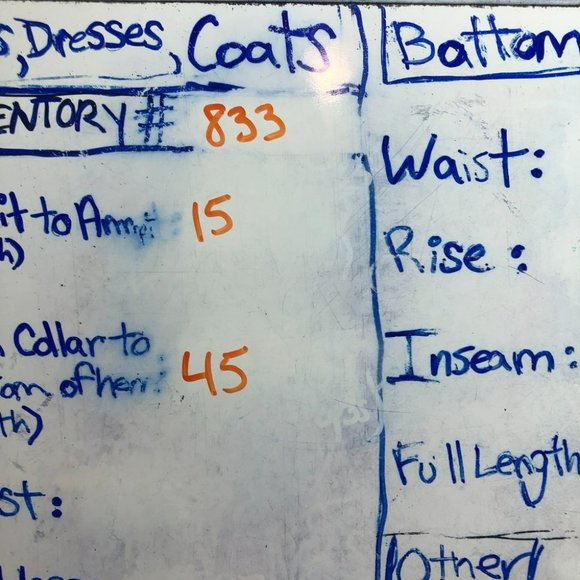 s, Dresses, Coats
ENTORY # 833
it to Armpit: 15
h)
Collar to
om of hem: 45
th)
st:
Bottom
Waist:
Rise:
Inseam:
Full Length
Other